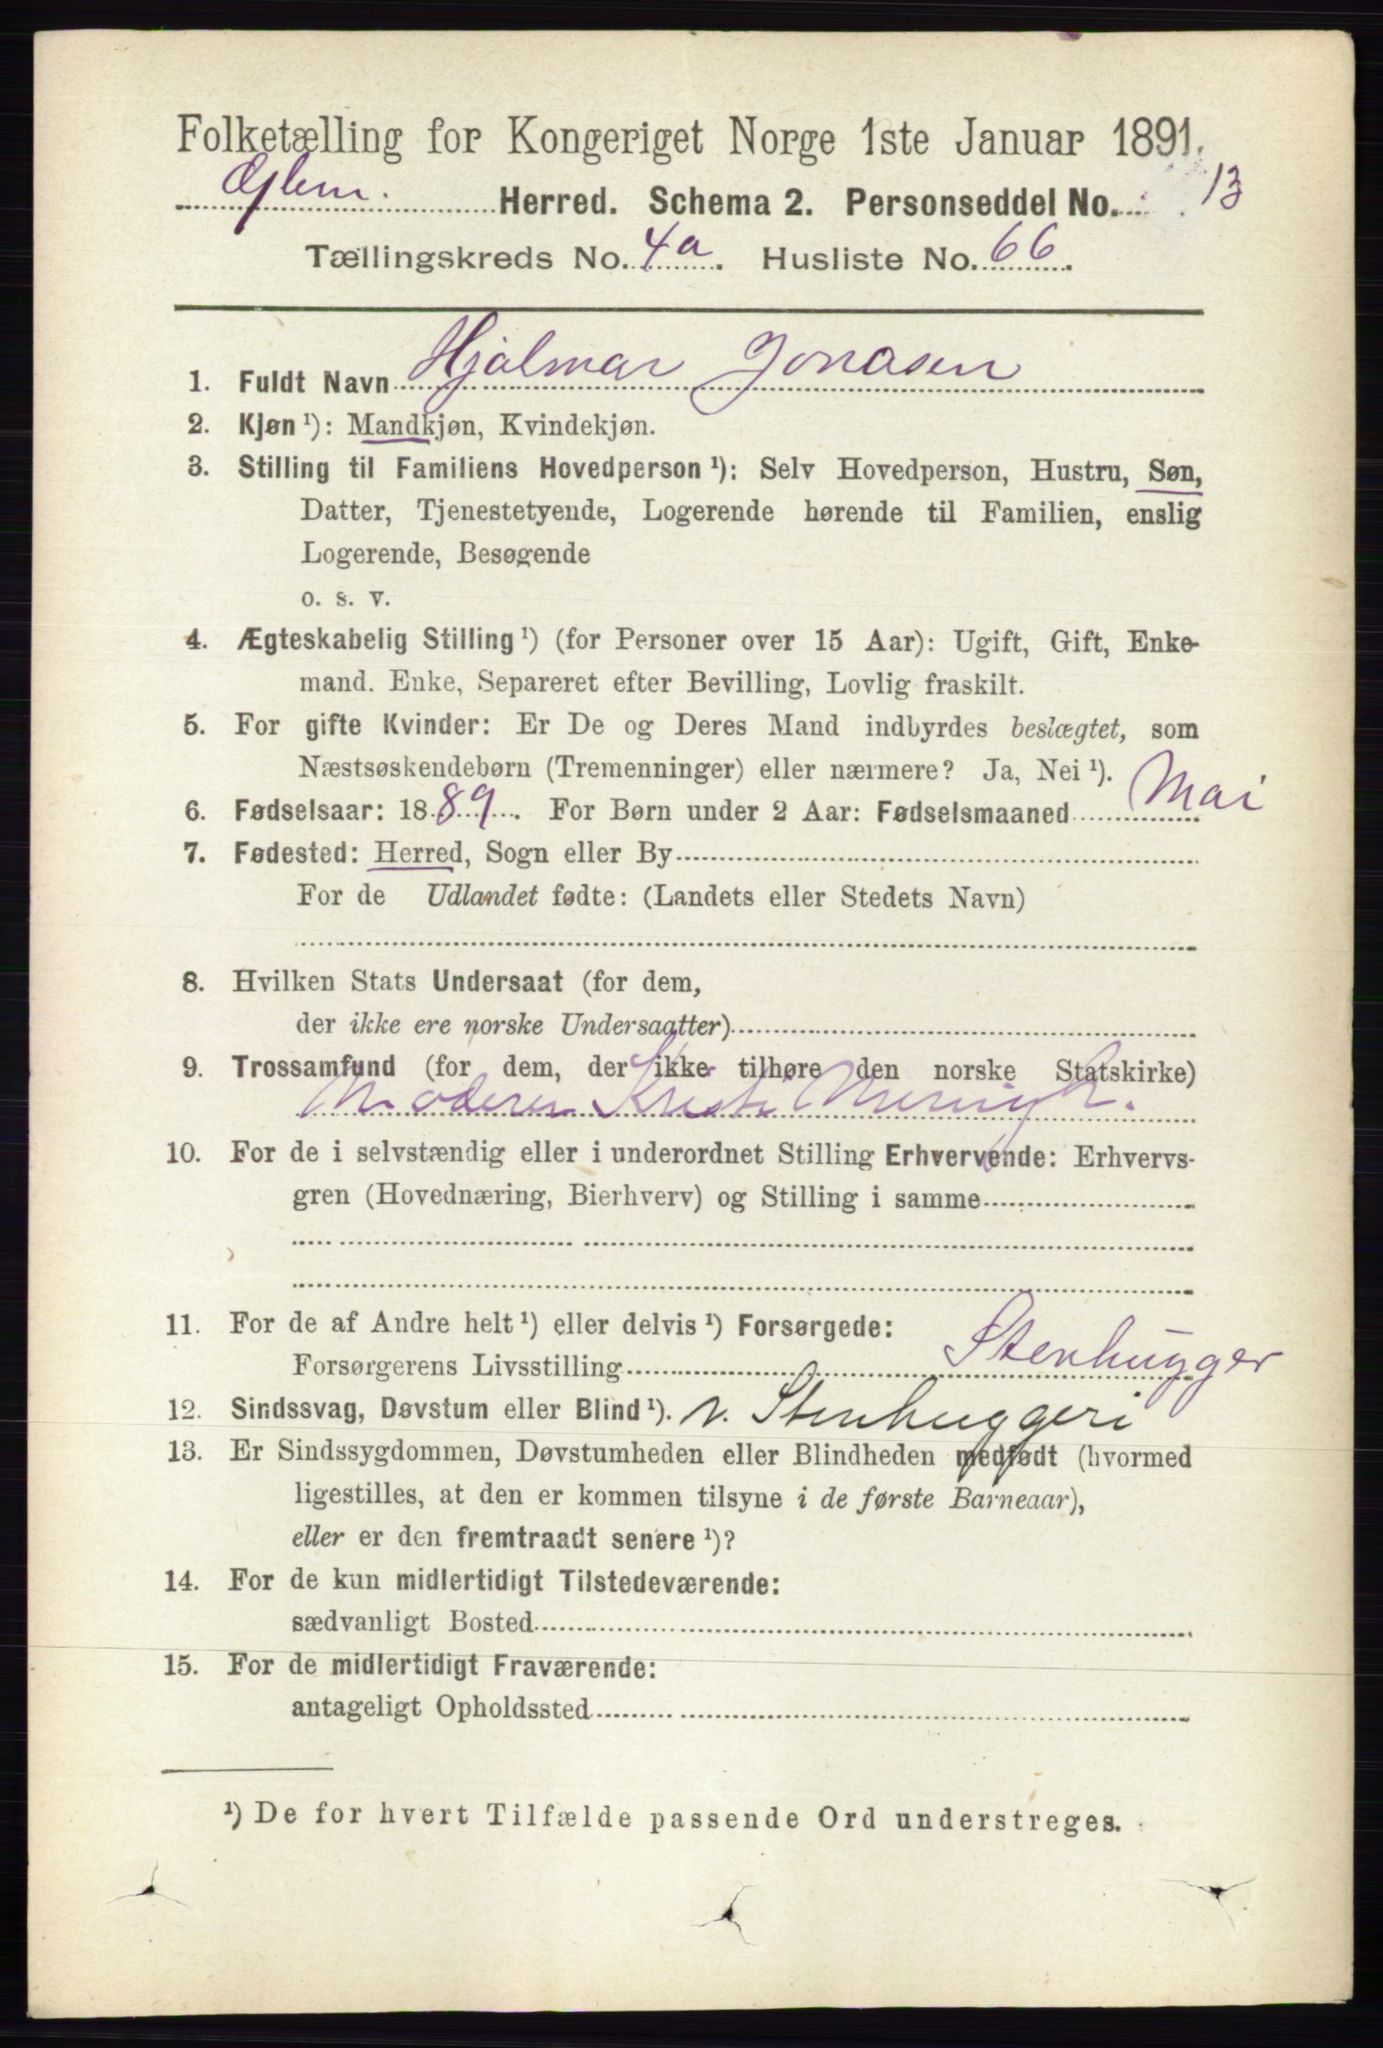 Folketælling for Kongeriget Norge 1ste Januar 1891.
Glem. Herred. Schema 2. Personseddel No. 13
Tællingskreds No. 4a. Husliste No. 66.
1. Fuldt Navn Hjalmar Jonasen
2. Kjøn ¹): Mandkjøn, Kvindekjøn.
3. Stilling til Familiens Hovedperson ¹): Selv Hovedperson, Hustru, Søn,
Datter, Tjenestetyende, Logerende hørende til Familien, enslig
Logerende, Besøgende
o. s. v.
4. Ægteskabelig Stilling ¹) (for Personer over 15 Aar): Ugift, Gift, Enke-
mand. Enke, Separeret efter Bevilling, Lovlig fraskilt.
5. For gifte Kvinder: Er De og Deres Mand indbyrdes beslægtet, som
Næstsøskendebørn (Tremenninger) eller nærmere? Ja, Nei ¹).
6. Fødselsaar: 1889. For Børn under 2 Aar: Fødselsmaaned Mai
7. Fødested: Herred, Sogn eller By
For de Udlandet fødte: (Landets eller Stedets Navn)
8. Hvilken Stats Undersaat (for dem,
der ikke ere norske Undersaatter)
9. Trossamfund (for dem, der ikke tilhøre den norske Statskirke)
Kristi
10. For de i selvstændig eller i underordnet Stilling Erhvervende: Erhvervs-
gren (Hovednæring, Bierhverv) og Stilling i samme
11. For de af Andre helt ¹) eller delvis ¹) Forsørgede:
Forsørgerens Livsstilling Stenhugger
12. Sindssvag, Døvstum eller Blind ¹). v. Stenhuggeri
13. Er Sindssygdommen, Døvstumheden eller Blindheden medfødt (hvormed
ligestilles, at den er kommen tilsyne i de første Barneaar),
eller er den fremtraadt senere ¹)?
14. For de kun midlertidigt Tilstedeværende:
sædvanligt Bosted
15. For de midlertidigt Fraværende:
antageligt Opholdssted
¹) De for hvert Tilfælde passende Ord understreges.